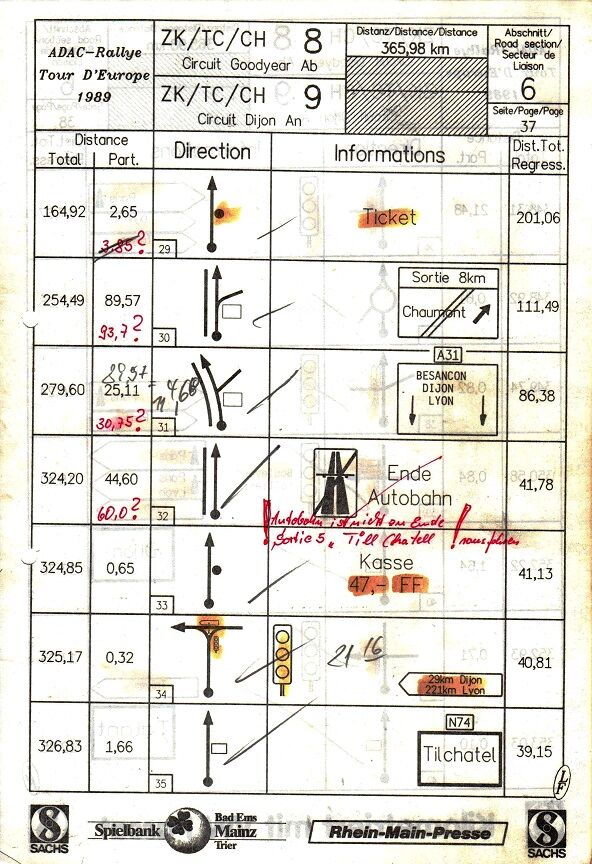 ADAC-Rallye
Tour D'Europe
1989
ZK/TC/CH 8
Circuit Goodyear Ab
ZK/TC/CH 9
Circuit Dijon An
Distanz/Distance/Distance
365,98 km
Abschnitt/
Road section/
Secteur de
Liaison
6
Seite/Page/Page
37
Distance
Total Part.
Direction
Informations
Dist.Tot.
Regress.
164,92 2,65 Ticket 201,06
3,85?
29
Sortie 8km
254,49 89,57 Chaumont 111,49
93,7?
30
A31
BESANCON
DIJON
LYON
279,60 25,11 86,38
30,75?
31
324,20 44,60 Ende
Autobahn 41,78
60,0?
32
! Autobahn ist nicht am Ende
Sortie 5, Till Chatell ! rausfahren
324,85 0,65 Kasse 41,13
47,- FF
33
325,17 0,32 21 16 40,81
29km Dijon
221km Lyon
34
N74
326,83 1,66 Tilchatel 39,15
35
SACHS
Spielbank
Bad Ems
Mainz
Trier
Rhein-Main-Presse
SACHS